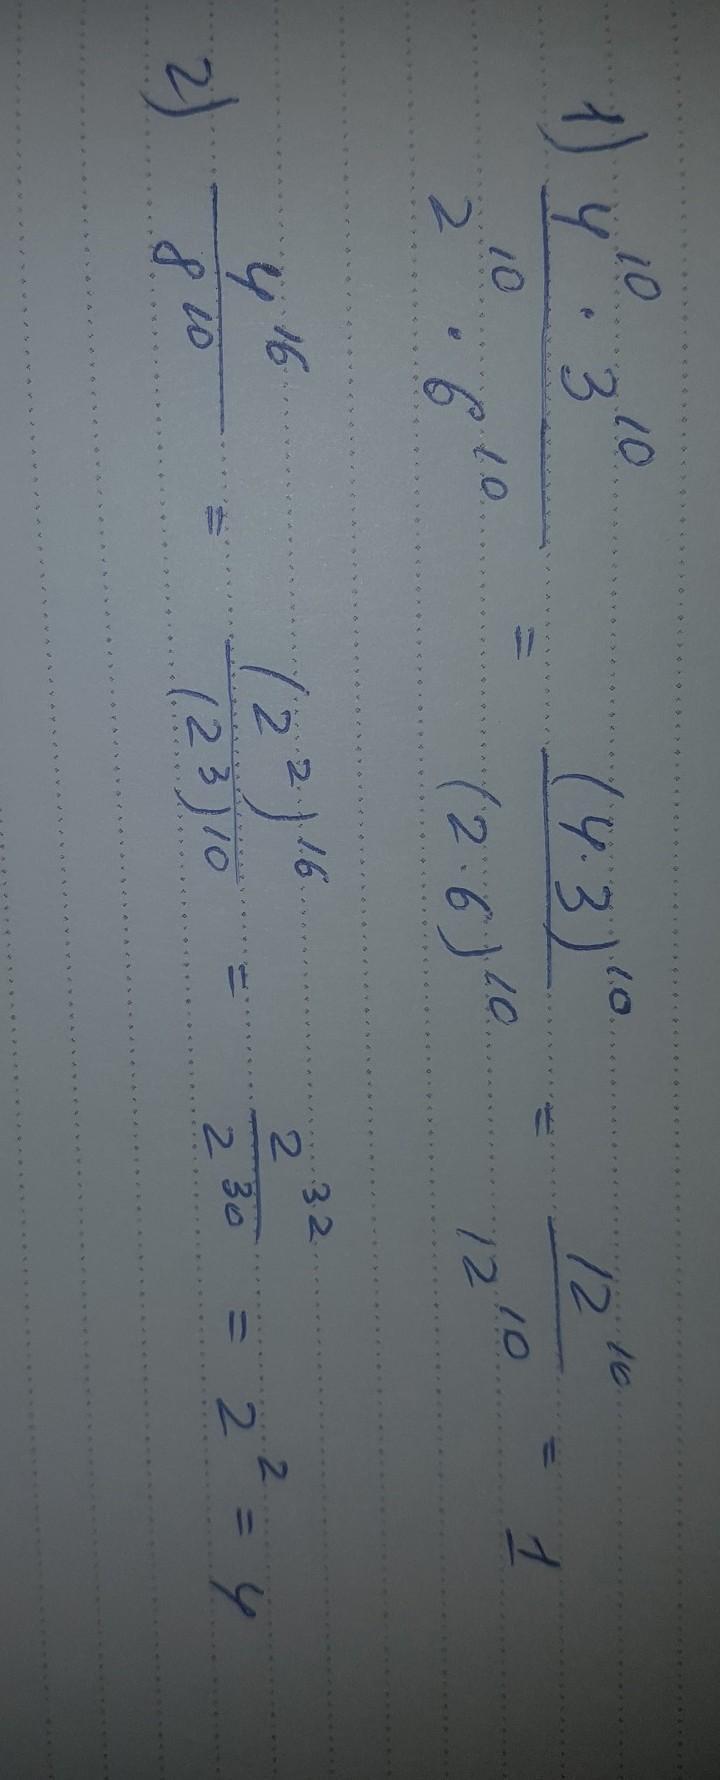 1) 4^10 · 3^10 / 2^10 · 6^10 = (4·3)^10 / (2·6)^10 = 12^10 / 12^10 = 1
2) 4^16 / 8^10 = (2^2)^16 / (2^3)^10 = 2^32 / 2^30 = 2^2 = 4